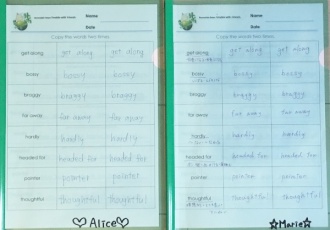 Name
Date
Copy the words two times
get along get along get along
bossy bossy bossy
braggy braggy braggy
far away far away far away
hardly hardly hardly
headed for headed for headed for
pointer pointer pointer
thoughtful thoughtful thoughtful
♡Alice♡
Name
Date
Copy the words two times
get along get along get along
bossy bossy bossy
braggy braggy braggy
far away far away far away
hardly hardly hardly
headed for headed for headed for
pointer pointer pointer
thoughtful thoughtful thoughtful
☆Marie☆